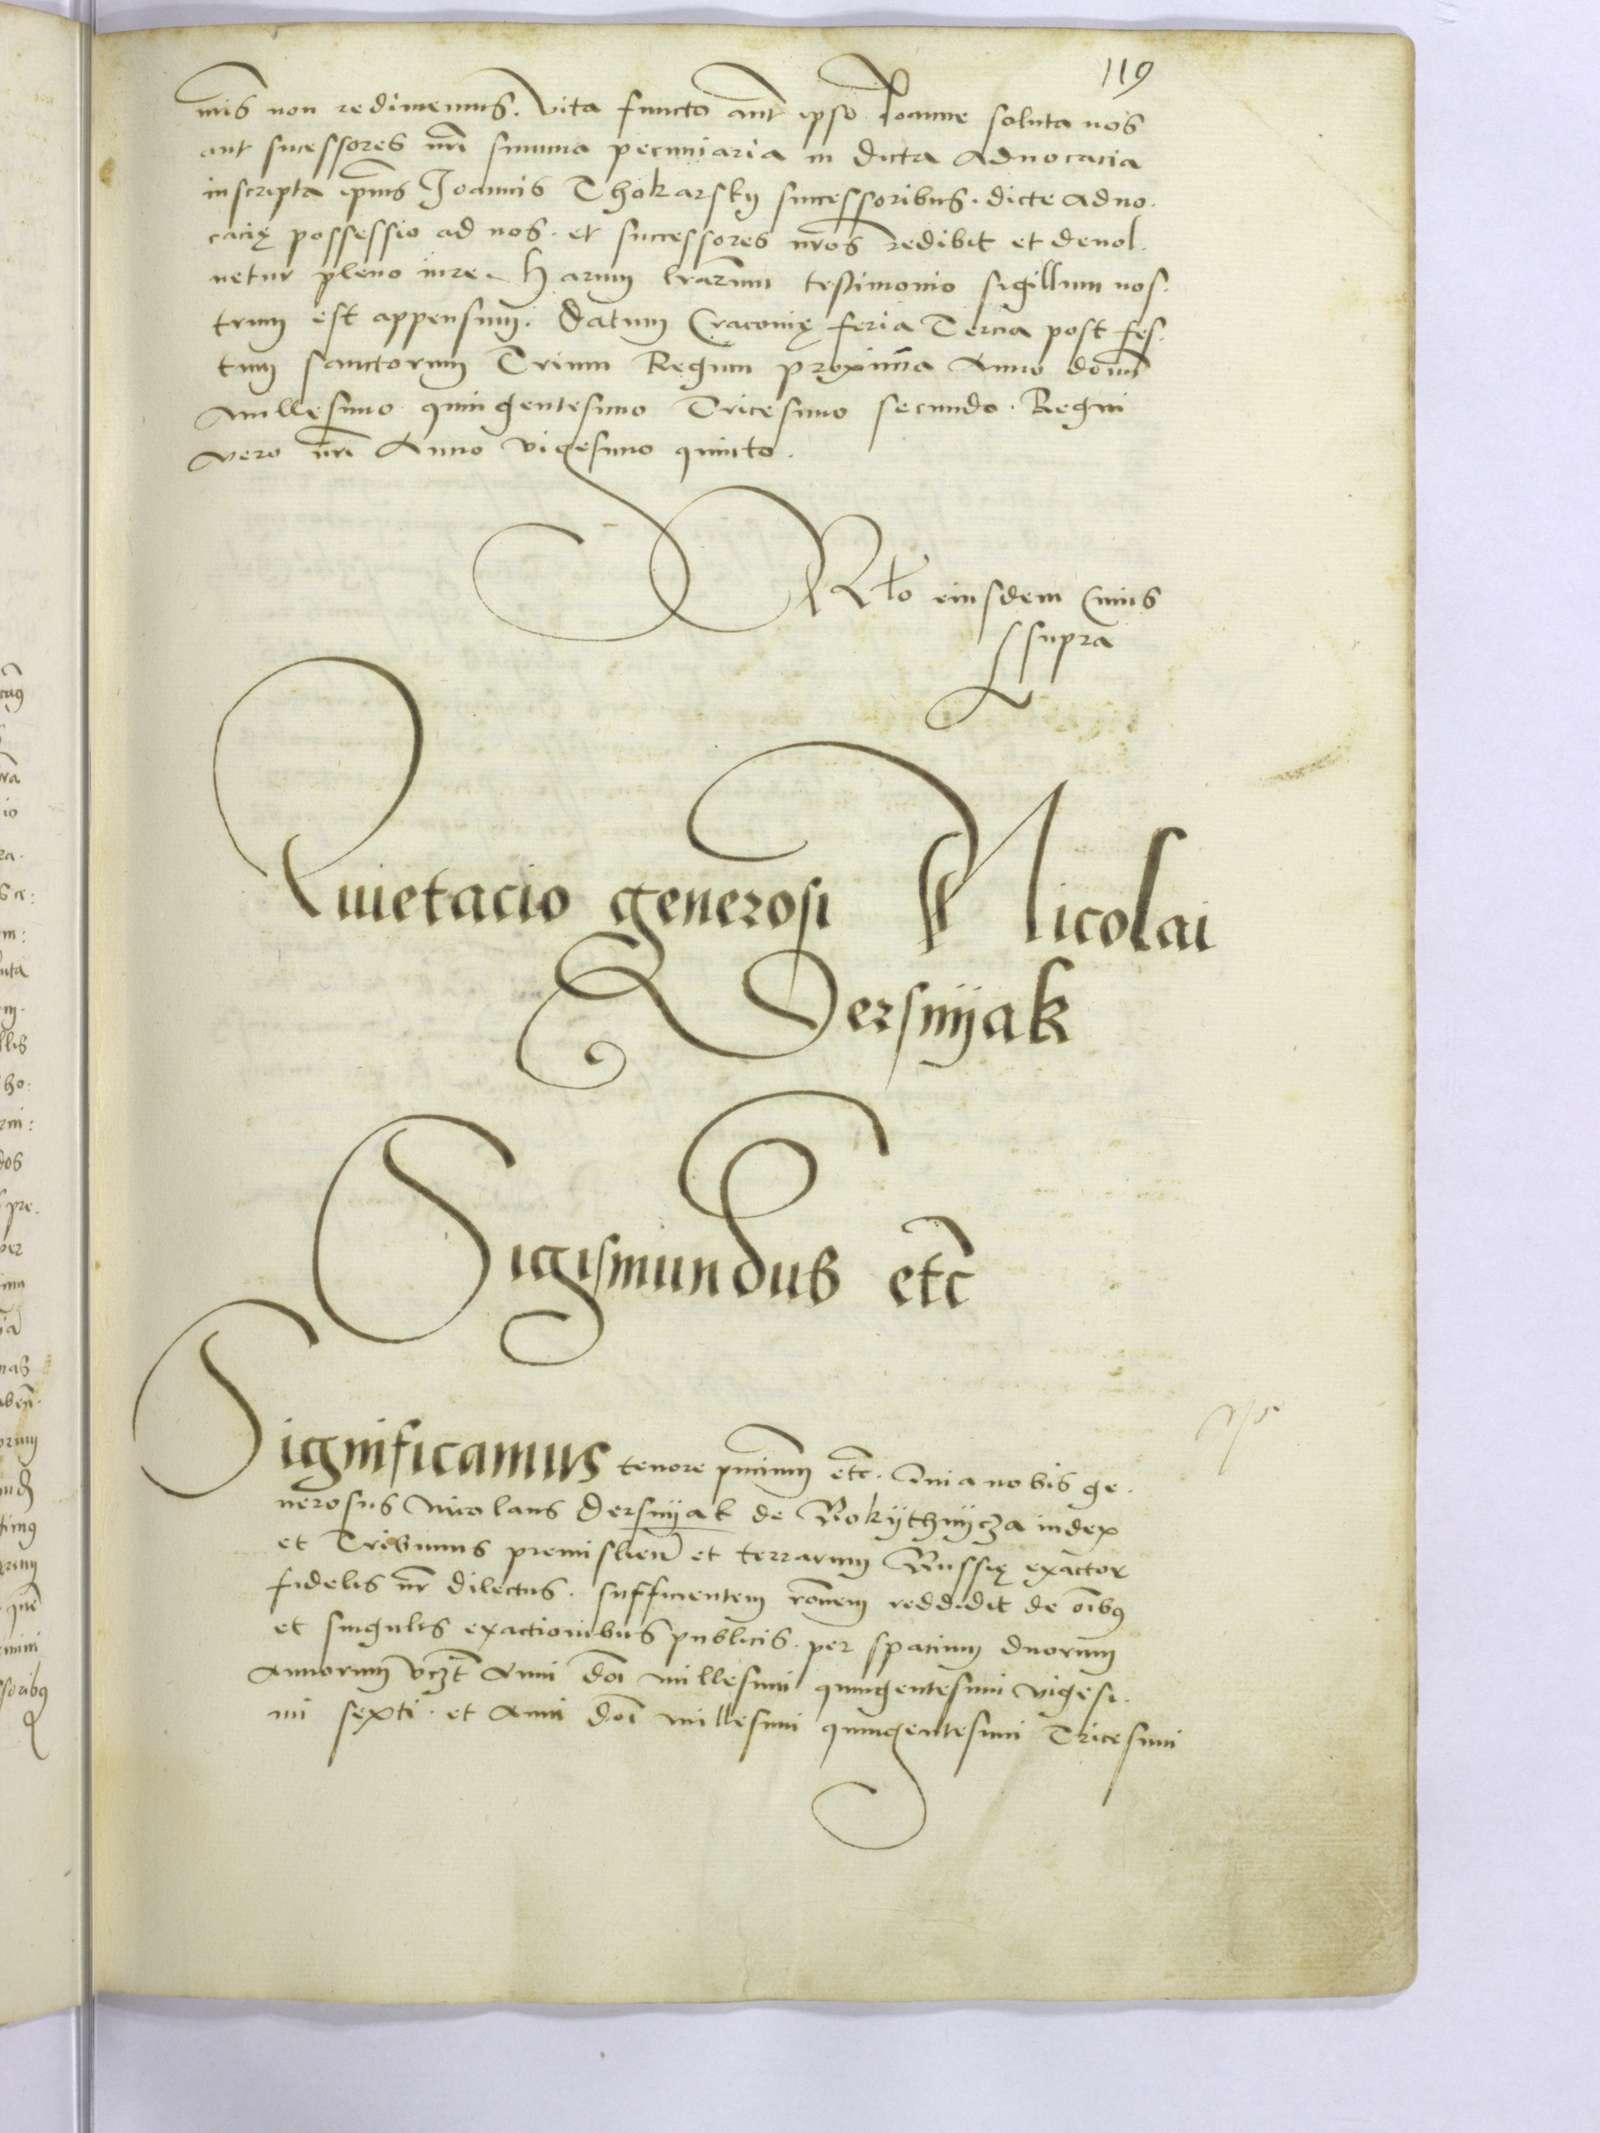 119
mis non redimemus. Vita functo aut̃ ipso Joanne soluta nos
aut sucessores nr̃i summa pecuniaria in dicta Aduocacia
inscripta ip̃ius Joannis Thokarsky successoribus. dicte aduo.
cacię possessio ad nos. et successores nr̃os redibit et deuol.
uetur pleno iure. Harum lrãrum testimonio sigillum nos.
trum est appensum. Datum Cracouię feria Tercia post fes.
tum sanctorum Trium Regum proxima Anno domĩ
Millesimo quingentesimo Tricesimo secundo. Regni
vero nr̃i Anno vigesimo quinto.
Rl̃o eiusdem Cuius
supra
Quietacio generosi Nicolai
Dersnijak
Sigismundus etc̃
Significamus tenore pñcium etc̃. Quia nobis ge.
nerosus Nicolaus Dersnijak de Rokijthnijcza iudex
et Tribunus premislieñ et terrarum Russię exactor
fidelis nr̃ dilectus. sufficientem rõnem reddidit de oĩbus
et singulis exactionibus publicis. per spatium duorum
Annorum vczt̃ Anni doĩ millesimi quingentesimi vigesi.
mi sexti. et Anni doĩ millesimi quingentesimi Tricesimi